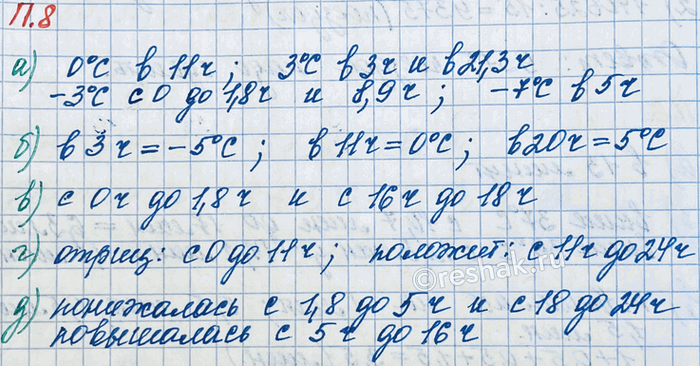 П.8
а) 0°С в 11ч; 3°С в 3ч и в 21,3ч
-3°С с 0 до 1,8ч и 8,9ч; -7°С в 5ч
б) в 3ч = -5°С; в 11ч = 0°С; в 20ч = 5°С
в) с 0ч до 1,8ч и с 16ч до 18ч
г) отриц: с 0 до 11ч; положит: с 11ч до 24ч
©reshak.ru
д) понижалась с 1,8 до 5ч и с 18 до 24ч
повышалась с 5ч до 16ч